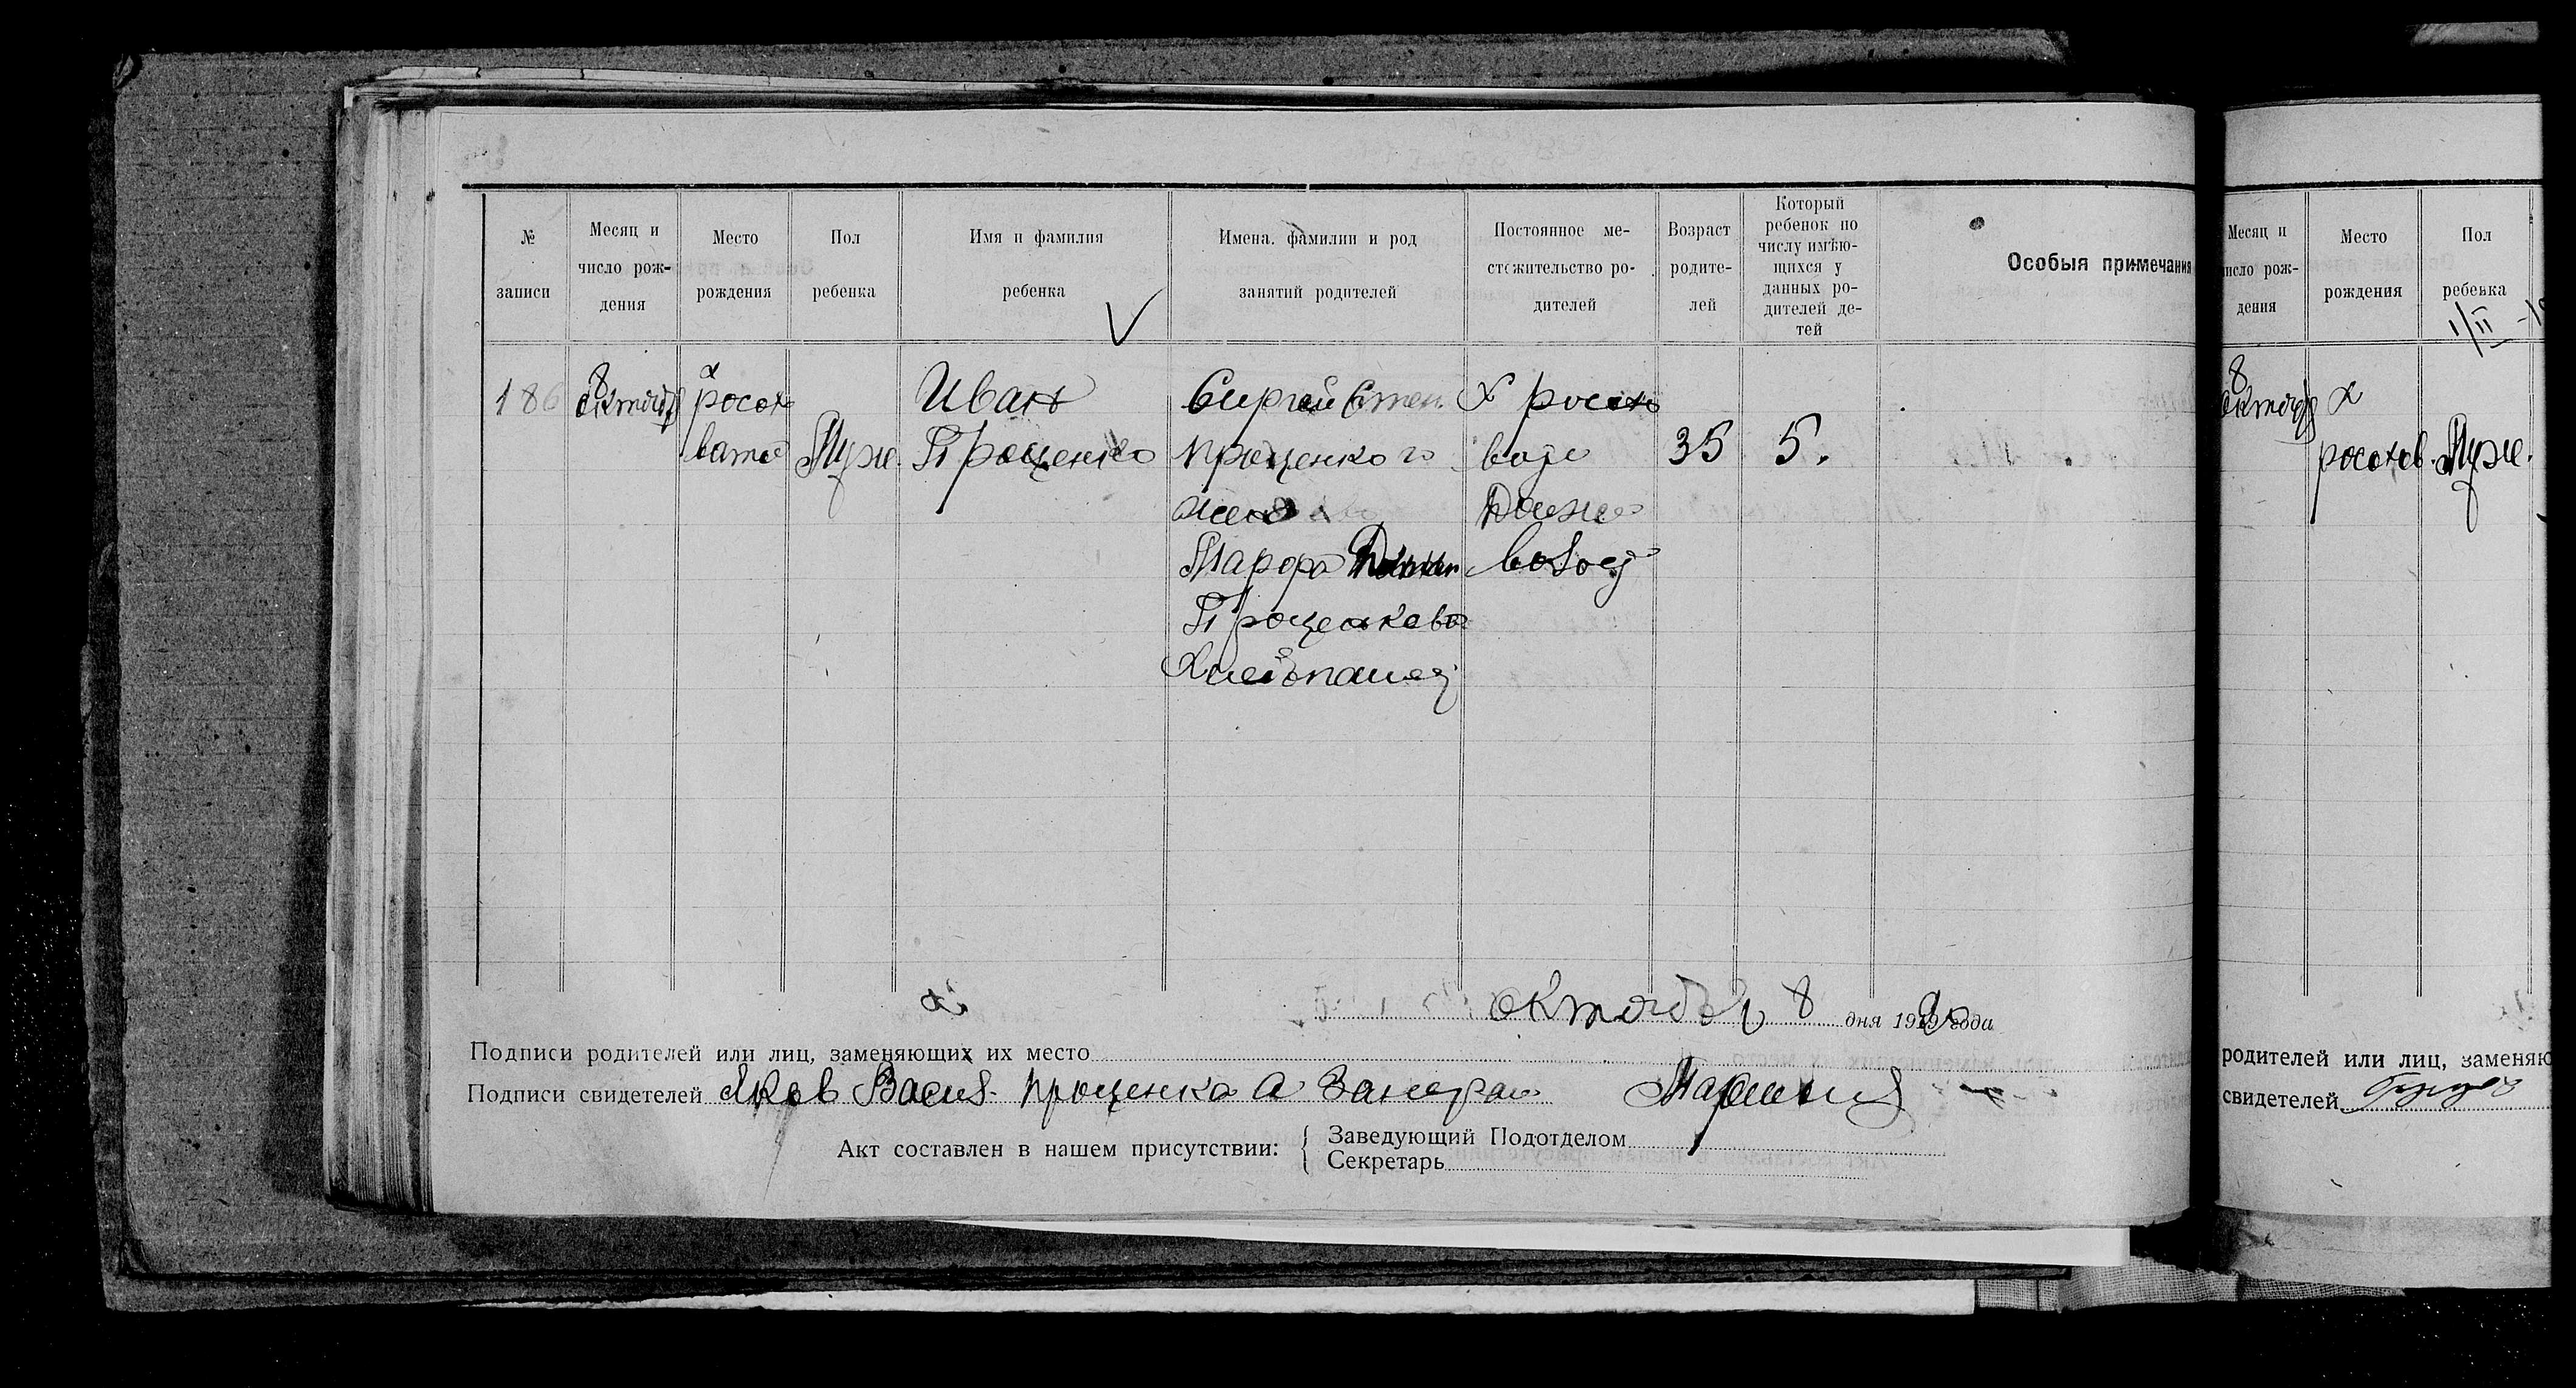 №
записи
Месяц и
число рож-
дения
Место
рождения
Пол
ребенка
Имя и фамилия
ребенка
Имена, фамилии и род
занятий родителей
Постоянное ме-
стожительство ро-
дителей
Возраст
родите-
лей
Который
ребенок по
числу имѣю-
щихся у
данных ро-
дителей де-
тей
Особыя примечания
186
8
октябр
х
росох
вата
Муж.
Иван
Проценко
Сиргей Степ.
Проценкого
жена
Марфа
Проценкова
Хлебопашец
х росохо
вате
35
5.
октября 8 дня 19 года
Подписи родителей или лиц, заменяющих их место
Подписи свидетелей Яков Васил. Проценко а
Акт составлен в нашем присутствии:
Заведующий Подотделом
Секретарь
Месяц и
число рож-
дения
Место
рождения
Пол
ребенка
1/II
8
октябр
х
росохов.
Муж.
родителей или лиц, заменяю
свидетелей